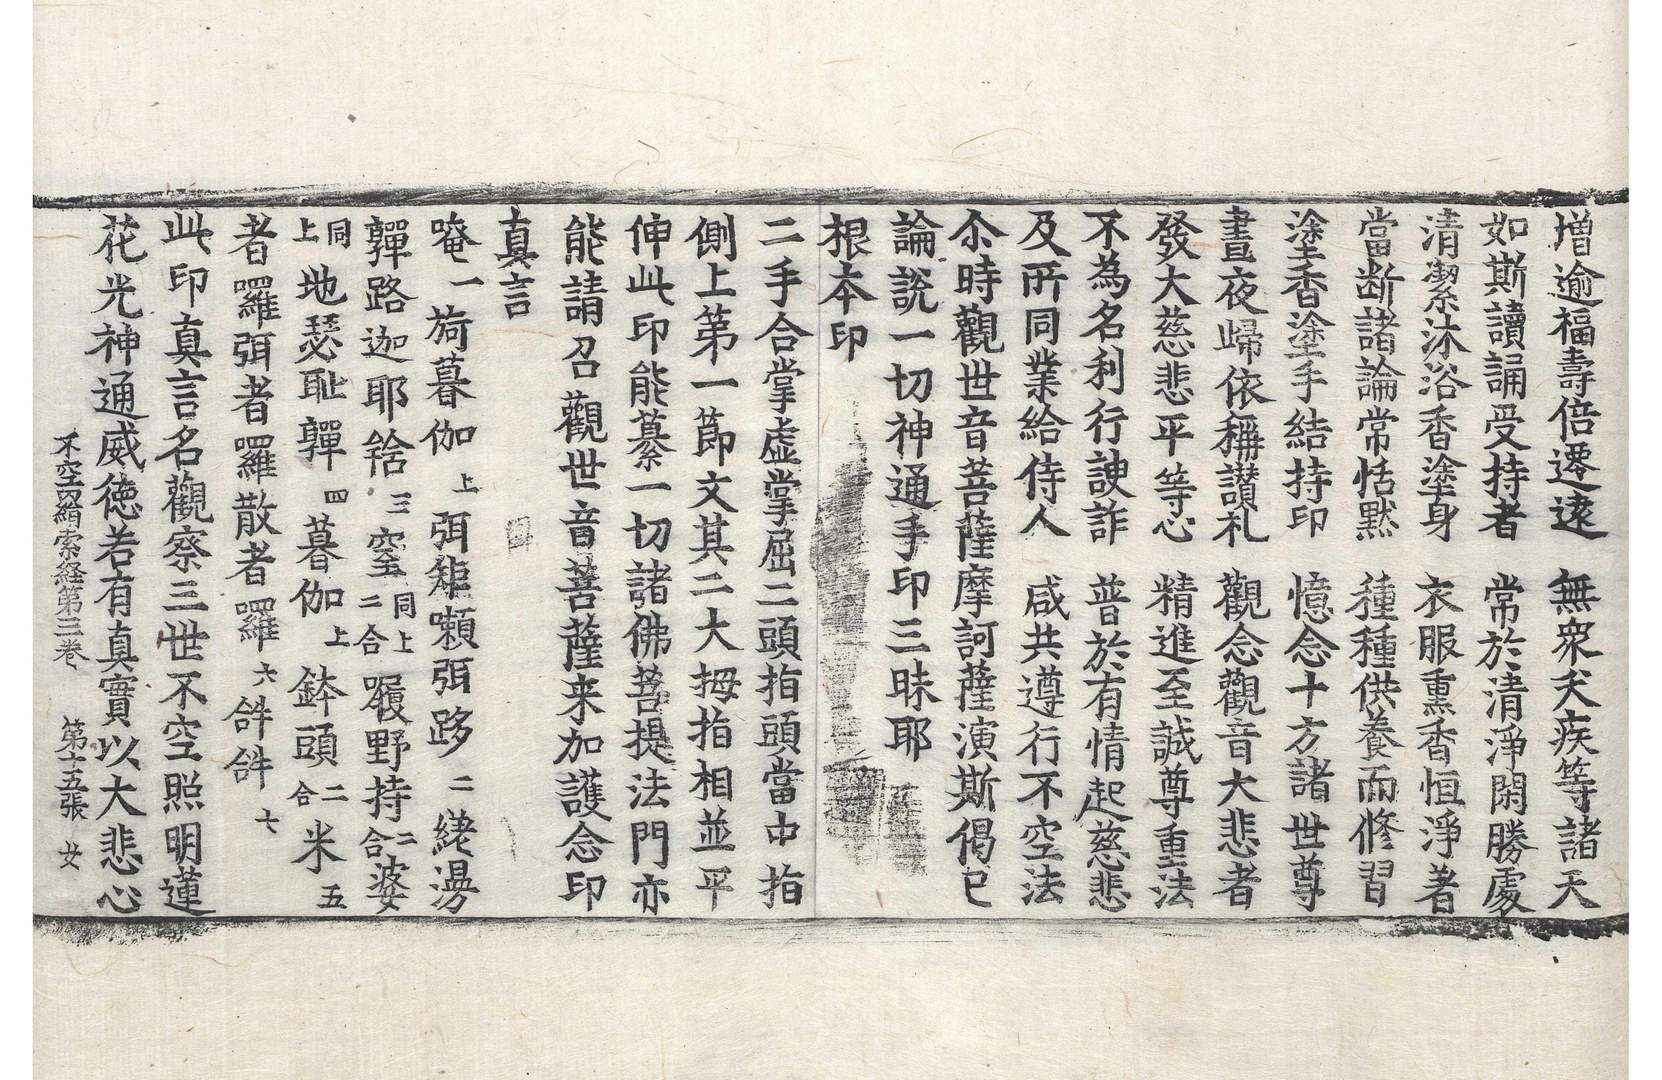 增逾福壽倍遷遠　無衆夭疾等諸天
如斯讀誦受持者　常於清淨閑勝處
清潔沐浴香塗身　衣服熏香恒淨著
當断諸論常恬黙　種種供養而修習
塗香塗手結持印　憶念十方諸世尊
晝夜歸依稱讃礼　觀念觀音大悲者
發大慈悲平等心　精進至誠尊重法
不為名利行諛詐　普於有情起慈悲
及所同業給侍人　咸共遵行不空法
尒時觀世音菩薩摩訶薩演斯偈已
論說一切神通手印三昧耶
根本印
二手合掌虚掌屈二頭指頭當中指
側上第一節文其二大拇指相並平
伸此印能纂一切諸佛菩提法門亦
能請召觀世音菩薩来加護念印
真言
唵一旖暮伽上弭𪓐嬾弭路二繞湯
嚲路迦耶䬶三窒二合同上囇野持二合婆
同上地瑟耻嚲四暮伽上鉢頭二合米五
者囉弭者囉散者囉六𤙖𤙖七
此印真言名觀察三世不空照明蓮
花光神通威徳若有真實以大悲心
不空羂索経第三巻　第十五張　女